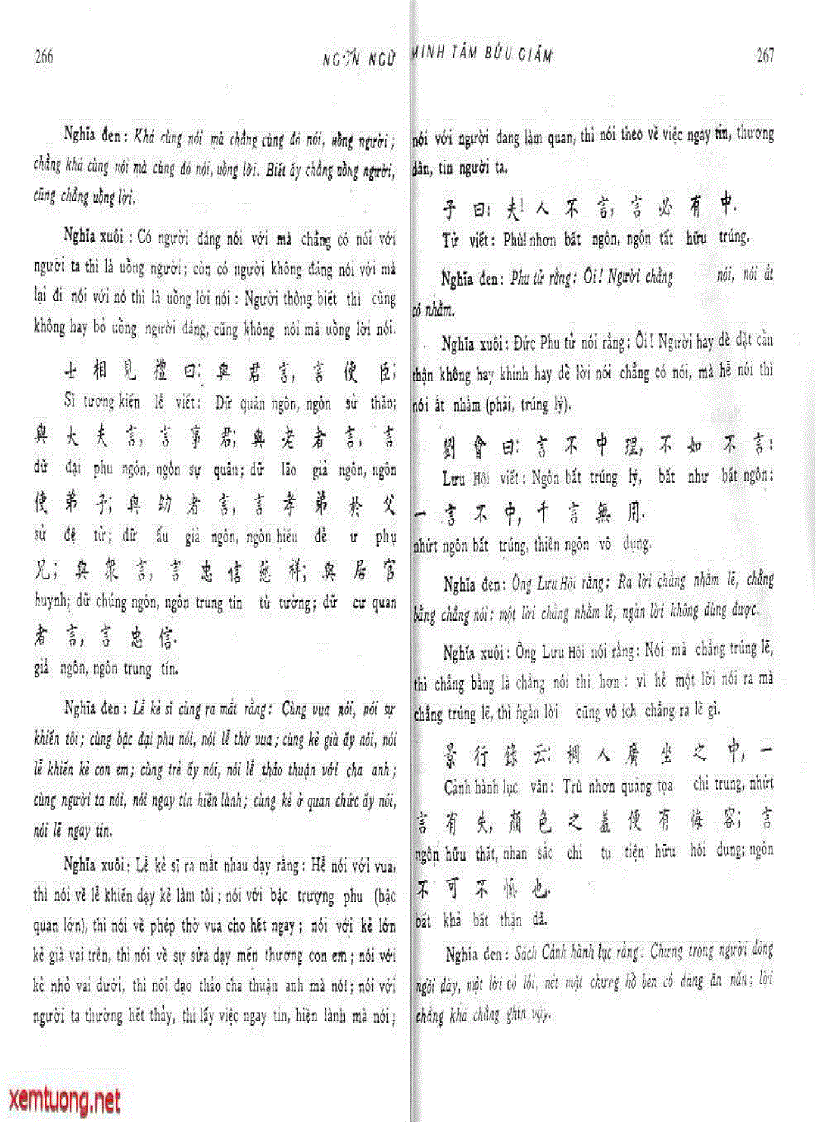 266
NGÔN NGỮ
Nghĩa đen : Khá cùng nói mà chẳng cùng đó nói, uồng người ;
chẳng khá cùng nói mà cùng đó nói, uồng lời. Biết ấy chẳng uồng người,
cũng chẳng uồng lời.
Nghĩa xuôi : Có người đáng nói với mà chẳng có nói với
người ta thì là uồng người ; còn có người không đáng nói với mà
lại đi nói với nó thì là uồng lời nói : Người thông biệt thì cũng
không hay bỏ uồng người đáng, cũng không nói mà uồng lời nói.
士 相 見 禮 曰 : 與 君 言, 言 使 臣 ;
Sĩ tương kiến lễ viết : Dữ quân ngôn, ngôn sử thần ;
與 大 夫 言, 言 事 君 ; 與 老 者 言, 言
dữ đại phu ngôn, ngôn sự quân ; dữ lão giả ngôn, ngôn
使 弟 子 ; 與 幼 者 言, 言 孝 弟 於 父
sử đệ tử ; dữ ấu giả ngôn, ngôn hiếu đễ ư phụ
兄 ; 與 衆 言, 言 忠 信 慈 祥 ; 與 居 官
huynh ; dữ chúng ngôn, ngôn trung tín từ tường ; dữ cư quan
者 言, 言 忠 信.
giả ngôn, ngôn trung tín.
Nghĩa đen : Lễ kẻ sĩ cùng ra mắt rằng : Cùng vua nói, nói sự
khiến tôi ; cùng bậc đại phu nói, nói lễ thờ vua ; cùng kẻ già ấy nói, nói
lẽ khiến kẻ con em ; cùng trẻ ấy nói, nói lẽ thảo thuận với cha anh ;
cùng người ta nói, nói ngay tín hiền lành ; cùng kẻ ở quan chức ấy nói,
nói lẽ ngay tín.
Nghĩa xuôi : Lễ kẻ sĩ ra mắt nhau dạy rằng : Hễ nói với vua,
thì nói về lẽ khiến dạy kẻ làm tôi ; nói với bậc trượng phu (bậc
quan lớn), thì nói về phép thờ vua cho hết ngay ; nói với kẻ lớn
kẻ già vai trên, thì nói về sự sửa dạy mến thương con em ; nói với
kẻ nhỏ vai dưới, thì nói đạo thảo cha thuận anh mà nói ; nói với
người ta thường hết thảy, thì lấy việc ngay tín, hiền lành mà nói ;
MINH TÂM BỬU GIÁM
267
nói với người đang làm quan, thì nói theo về việc ngay tín, thương
dân, tin người ta.
子 曰 : 夫 ! 人 不 言, 言 必 有 中.
Tử viết : Phù! nhơn bất ngôn, ngôn tất hữu trúng.
Nghĩa đen : Phu tử rằng : Ôi ! Người chẳng nói, nói ắt
có nhằm.
Nghĩa xuôi : Đức Phu tử nói rằng : Ôi ! Người hay dè dặt cẩn
thận không hay khinh hay dẻ lời nói chẳng có nói, mà hễ nói thì
nói ắt nhằm (phải, trúng lý).
劉 會 曰 : 言 不 中 理, 不 如 不 言 :
Lưu Hội viết : Ngôn bất trúng lý, bất như bất ngôn :
一 言 不 中, 千 言 無 用.
nhứt ngôn bất trúng, thiên ngôn vô dụng.
Nghĩa đen : Ông Lưu Hội rằng : Ra lời chẳng nhằm lẽ, chẳng
bằng chẳng nói : một lời chẳng nhằm lẽ, ngàn lời không dùng được.
Nghĩa xuôi : Ông Lưu Hội nói rằng : Nói mà chẳng trúng lẽ,
thì chẳng bằng là chẳng nói thì hơn : vì hễ một lời nói ra mà
chẳng trúng lẽ, thì ngàn lời cũng vô ích chẳng ra lẽ gì.
景 行 錄 云 : 稠 人 廣 坐 之 中, 一
Cảnh hành lục vân : Trù nhơn quảng tọa chi trung, nhứt
言 有 失, 顏 色 之 羞 便 有 悔 容 ; 言
ngôn hữu thất, nhan sắc chi tu tiện hữu hối dung ; ngôn
不 可 不 慎 也.
bất khả bất thận dã.
Nghĩa đen : Sách Cảnh hành lục rằng : Chưng trong người đông
ngồi dày, một lời có lỗi, nét mặt chưng hổ bèn có dáng ăn năn : lời
chẳng khá chẳng ghín vậy.
xemtuong.net